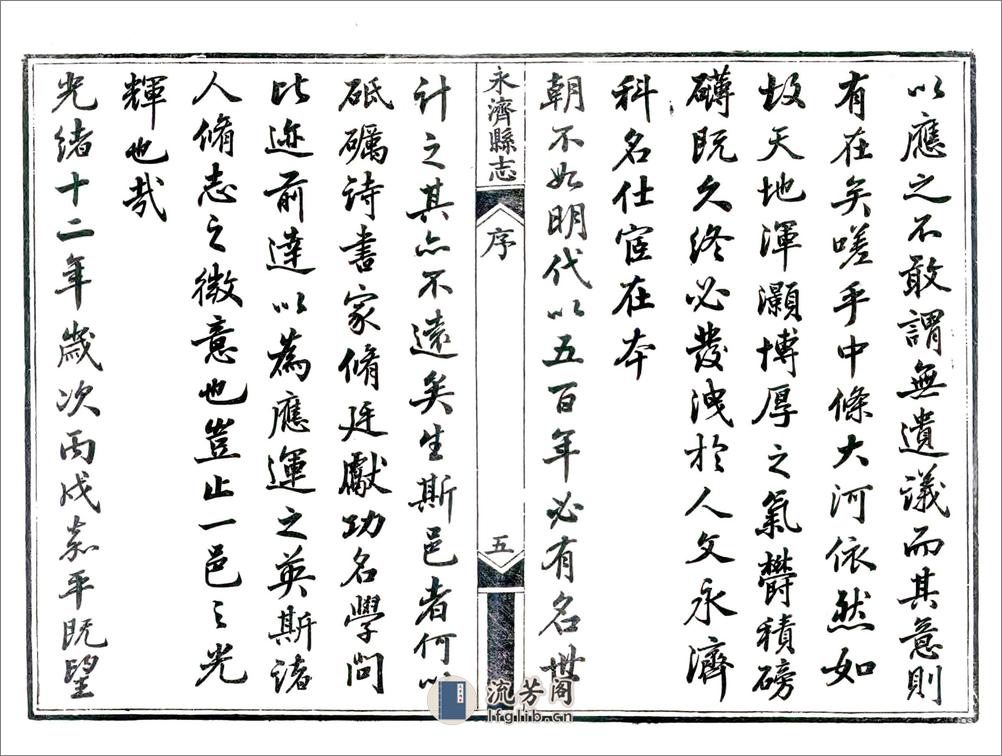 以應之不敢謂無遺議而其意則
有在矣嗟乎中條大河依然如
故天地渾灝博厚之氣欝積磅
礴既久終必發洩於人文永濟
科名仕宦在本
朝不如明代以五百年必有名世
永濟縣志
序
五
計之其亦不遠矣生斯邑者何以
砥礪詩書家脩廷獻功名學問
比迹前達以為應運之英斯諸
人脩志之微意也豈止一邑之光
輝也哉
光緒十二年歲次丙戌嘉平既望
流芳阁
lfglib.cn